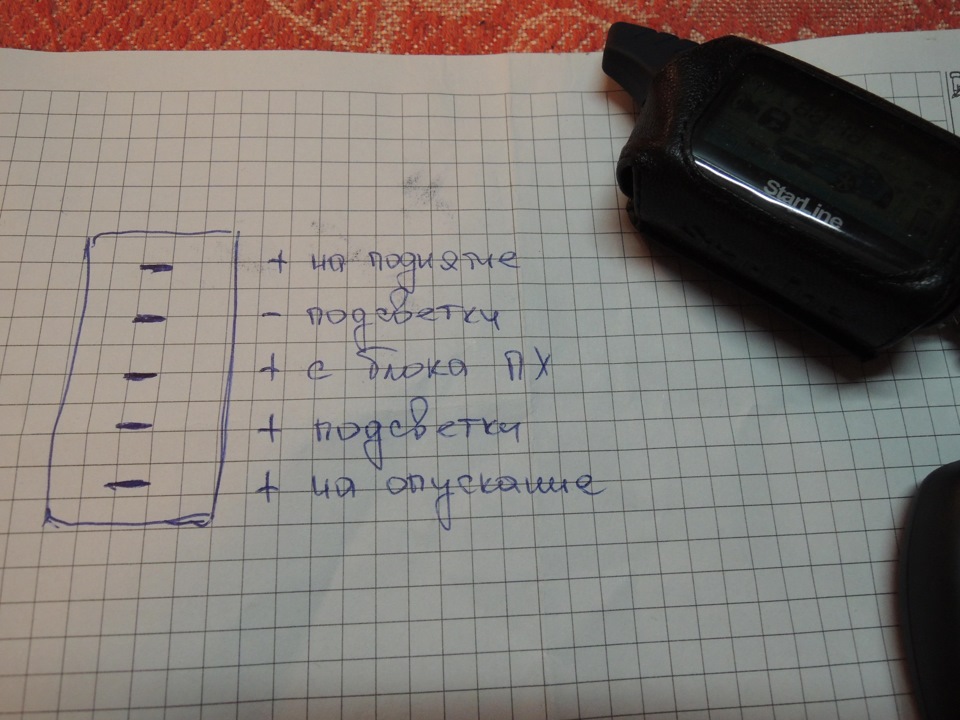 + на поднятие
- подсветки
+ с блока ПХ
+ подсветки
+ на опускание
StarLine